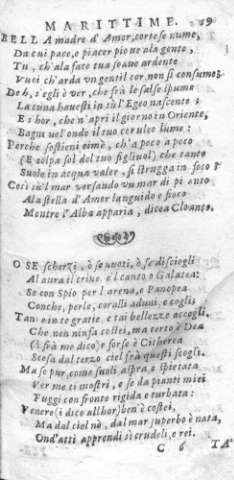 MARITTIME. 29
BELLA madre d'Amor, cortese nume,
Da cui pace, e piacer piove ala gente,
Tu, ch'ala face tua soave ardente
Vuoi ch'arda vn gentil cor, non si consume;
Deh, s'egli è ver, che frà le salse spume
La cuna hauesti in sù l'Egeo nascente;
E s'hor, che n'apri il giorno in Oriente,
Bagni nel'onde il tuo ceruleo lume:
Perche sostieni oimè, ch'a poco a poco
(E colpa sol del tuo figliuol) che tanto
Suole in acqua valer, si strugga in foco?
Così su'l mar versando vn mar di pianto
Ala stella d'Amor languido e fioco
Mentre l'Alba apparia, dicea Cloanto.
O SE scherzi, ò se nuoti, ò se disciogli
Al aura il crine, e'l canto o Galatea:
Se con Spio per l'arena, e Panopea
Conche, perle, coralli aduni, e cogli,
Tante in te gratie, e tai bellezze accogli,
Che non ninfa costei, ma certo è Dea
(Frà me dico) e forse è Citherea
Scesa dal terzo ciel frà questi scogli.
Ma se pur, come suoli, aspra, e spietata
Ver me ti mostri, e se da pianti miei
Fuggi con fronte rigida e turbata:
Venere (i dico allhor) ben è costei,
Ma dal ciel nò, dal mar superbo è nata,
Ond'atti apprendi sì crudeli, e rei.
C 6 TA'